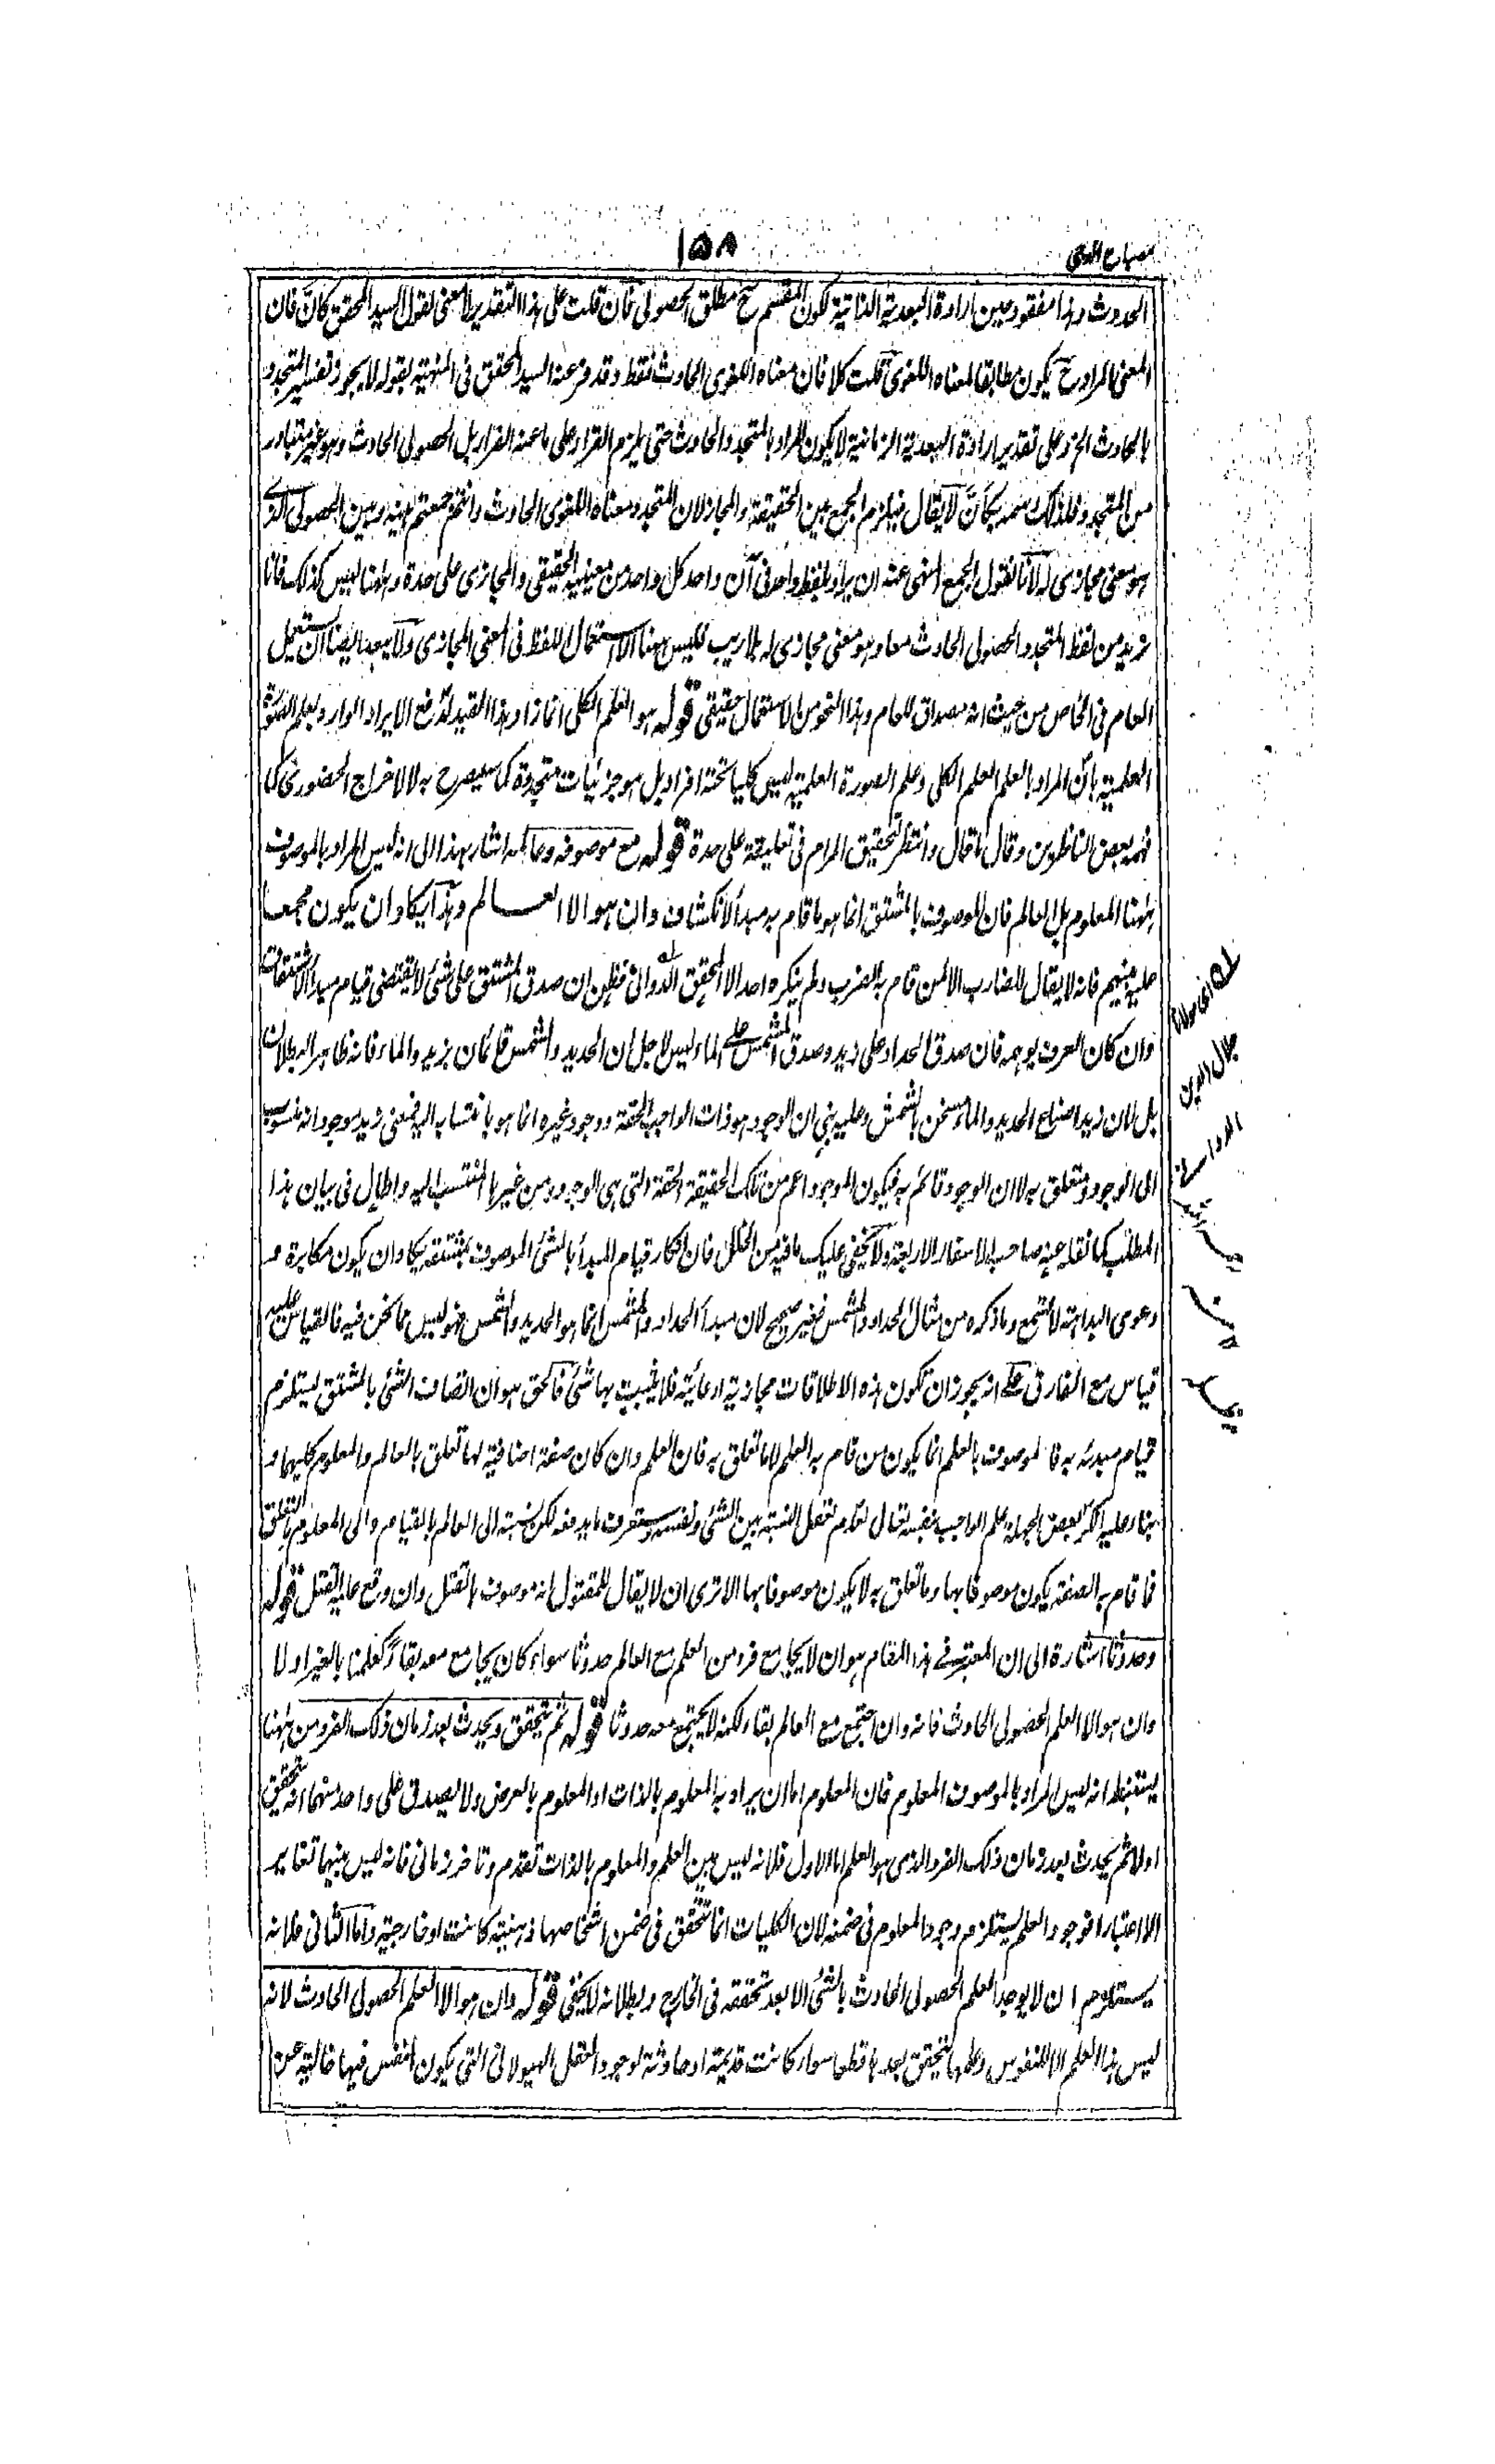 ١٥٨
مصباح الدجى
الحدوث وهذا مفقود حين ارادة البعدية الذاتية لكون المقسم ح مطلق الحصولى فان قلت على هذا التقدير لا معنى لقول السيد المحقق كان فان
المعنى المراد ح يكون مطابقا لمعناه اللغوى قلت كلا فان معناه اللغوى الحادث فقط وقد فرعنه السيد المحقق فى المنهية بقوله لا يجوز تفسير المتجدد
بالحادث الخ وعلى تقدير ارادة البعدية الزمانية لا يكون المراد بالمتجدد الحادث حتى يلزم القرار على ما عنه الفرار بل الحصولى الحادث وهو غير متبادر
من المتجدد فلذلك صدر بكأن لا يقال فيلزم الجمع بين الحقيقة والمجاز لان المتجدد معناه اللغوى الحادث وانتم جمعتم بينه وبين الحصولى الذى
هو معنى مجازى له لانا نقول الجمع المنهى عنه ان يراد بلفظ واحد فى آن واحد كل واحد من معنييه الحقيقى والمجازى على حدة وههنا ليس كذلك فانا
نريد من لفظ المتجدد الحصولى الحادث معا وهو معنى مجازى له بلا ريب فليس ههنا الا استعمال اللفظ فى المعنى المجازى ولا يبعد ايضا ان يستعمل
العام فى الخاص من حيث انه مصداق للعام وهذا النحو من الاستعمال حقيقى قوله هو العلم الكلى انما زاد هذا القيد لدفع الايراد الوارد بعلم الصورة
العلمية بان المراد بالعلم العلم الكلى وعلم الصورة العلمية ليس كليا تحته افراد بل هو جزئيات متجددة كما سيصرح به لا لاخراج الحضورى كما
فهم بعض الناظرين وقال ما قال وانتظر لتحقيق المرام فى تعليقة على حدة قوله مع موصوفه وعالمه اشار بهذا الى انه ليس المراد بالموصوف
ههنا المعلوم بل العالم فان الموصوف بالمشتق انما هو ما قام به مبدأ الانكشاف وان هو الا العالم وهذا يكاد ان يكون مجمعا
عليه بينهم فانه لا يقال للضارب الا لمن قام به الضرب ولم ينكره احد الا المحقق الدوانى فظن ان صدق المشتق على شئ لا يقتضى قيام مبدأ الاشتقاق
وان كان العرف يوهمه فان صدق الحداد على زيد وصدق المشمس على الماء ليس لاجل ان الحديد والشمس قائمان بزيد والماء فانه ظاهر البطلان
بل لان زيدا صناع الحديد والماء مسخن بالشمس وعليه بنى ان الوجود هو ذات الواجب الحقة ووجود غيره انما هو بانتسابه اليه فمعنى زيد موجود انه منسوب
الى الوجود ومتعلق به لا ان الوجود قائم به فيكون الموجود اعم من تلك الحقيقة الحقة التى هى الوجود ومن غيرها المنتسب اليه واطال فى بيان هذا
المطلب كما نقله عنه صاحب الاسفار الاربعة ولا يخفى عليك ما فيه من الخلل فان انكار قيام المبدأ بالشئ الموصوف بمشتقه يكاد ان يكون مكابرة
ودعوى البداهة لا تسمع وما ذكره من مثال الحداد والمشمس فغير صحيح لان مبدأ الحداد والمشمس انما هو الحديد والشمس فهو ليس مما نحن فيه فالقياس عليه
قياس مع الفارق على انه يجوز ان تكون هذه الاطلاقات مجازية ادعائية فلا يثبت بها شئ فالحق هو ان اتصاف الشئ بالمشتق يستلزم
قيام مبدئه به فالموصوف بالعلم انما يكون من قام به العلم لا ما تعلق به فان العلم وان كان صفة اضافية لها تعلق بالعالم والمعلوم كليهما و
بناء عليه انكر بعض الجهلة علم الواجب بنفسه تعالى لعدم تعقل النسبة بين الشئ ونفسه وستعرف ما يدفعه لكن نسبته الى العالم بالقيام والى المعلوم بالتعلق
فما قام به الصفة يكون موصوفا بها وما تعلق به لا يكون موصوفا بها الا ترى ان لا يقال للمقتول انه موصوف بالقتل وان وقع عليه القتل قوله
وحدوثا اشارة الى ان المعتبر فى هذا المقام هو ان لا يجامع فرد من العلم مع العالم حدوثا سواء كان يجامع معه بقاء كعلمنا بالغير اولا
وان هو الا العلم الحصولى الحادث فانه وان اجتمع مع العالم بقاء لكنه لا يجتمع معه حدوثا قوله ثم يتحقق ويحدث بعد زمان ذلك الفرد من ههنا
يستنبط انه ليس المراد بالموصوف المعلوم فان المعلوم اما ان يراد به المعلوم بالذات او المعلوم بالعرض ولا يصدق على واحد منهما انه يتحقق
اولا ثم يحدث بعد زمان ذلك الفرد الذى هو العلم اما الاول فلانه ليس بين العلم والمعلوم بالذات تقدم وتاخر زمانى فانه ليس بينهما تغاير
الا اعتبارا فوجود العلم يستلزم وجود المعلوم فى ضمنه لان الكليات انما تتحقق فى ضمن اشخاصها ذهنية كانت او خارجية واما الثانى فلانه
يستلزم ان لا يوجد العلم الحصولى الحادث بالشئ الا بعد تحققه فى الخارج وبطلانه لا يخفى قوله وان هو الا العلم الحصولى الحادث لانه
ليس هذا العلم الا للنفوس وعلمها يتحقق بعدها قطعا سواء كانت قديمة او حادثة لوجود العقل الهيولانى التى يكون النفس فيها خالية عن
اى مولانا
جلال الدين
الدوانى